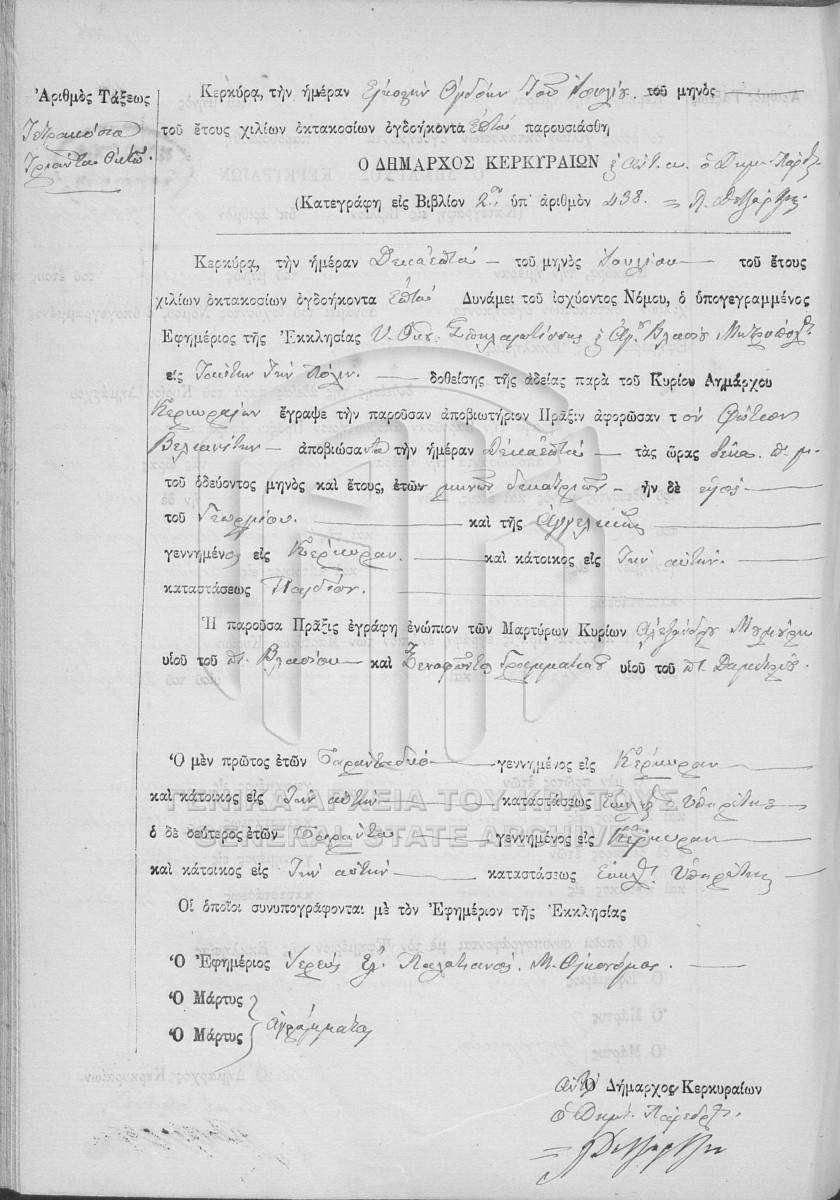 Ἀριθμὸς Τάξεως
Τετρακόσια
Τριάντα Ὀκτώ.
Κερκύρα, τὴν ἡμέραν Εἰκοστὴν Ὀγδόην Τοῦ Ἰουλίου τοῦ μηνὸς
τοῦ ἔτους χιλίων ὀκτακοσίων ὀγδοήκοντα Ἑπτὰ παρουσιάσθη
Ὁ ΔΗΜΑΡΧΟΣ ΚΕΡΚΥΡΑΙΩΝ ὁ Δημ. Πάρεδ.
(Κατεγράφη εἰς Βιβλίον 2ον ὑπ' ἀριθμὸν 438.
Κερκύρα, τὴν ἡμέραν Δεκαεπτὰ τοῦ μηνὸς Ἰουλίου τοῦ ἔτους
χιλίων ὀκτακοσίων ὀγδοήκοντα Ἑπτὰ Δυνάμει τοῦ ἰσχύοντος Νόμου, ὁ ὑπογεγραμμένος
Ἐφημέριος τῆς Ἐκκλησίας Υ. Θεοτ. Σπηλαιωτίσσης & Ἁγ. Βλασίου Μητροπόλ.
εἰς Ταύτην Τὴν Πόλιν. δοθείσης τῆς ἀδείας παρὰ τοῦ Κυρίου Δημάρχου
Κερκυραίων ἔγραψε τὴν παροῦσαν ἀποβιωτήριον Πρᾶξιν ἀφορῶσαν τ ὸν Φώτιον
Βελιανίτην ἀποβιώσαντα τὴν ἡμέραν Δεκαεπτὰ τὰς ὥρας δέκα. π. μ.
τοῦ ὁδεύοντος μηνὸς καὶ ἔτους, ἐτῶν μηνῶν δεκατριῶν ἦν δὲ υἱὸς
τοῦ Γεωργίου. καὶ τῆς Ἀγγελικῆς
γεννημένος εἰς Κέρκυραν. καὶ κάτοικος εἰς Τὴν αὐτήν.
καταστάσεως Παιδίον.
Ἡ παροῦσα Πρᾶξις ἐγράφη ἐνώπιον τῶν Μαρτύρων Κυρίων Ἀλεξάνδρου
υἱοῦ τοῦ π. Βλασίου καὶ Ξενοφῶντος Γραμματικοῦ υἱοῦ τοῦ π.
Ὁ μὲν πρῶτος ἐτῶν Σαρανταδυὸ γεννημένος εἰς Κέρκυραν
καὶ κάτοικος εἰς Τὴν αὐτήν καταστάσεως Ἐκκλ. Ὑπηρέτης
ὁ δὲ δεύτερος ἐτῶν Σαράντα γεννημένος εἰς Κέρκυραν
καὶ κάτοικος εἰς Τὴν αὐτήν καταστάσεως Ἐκκλ. Ὑπηρέτης
ΓΕΝΙΚΑ ΑΡΧΕΙΑ ΤΟΥ ΚΡΑΤΟΥΣ
GENERAL STATE ARCHIVES
Οἱ ὁποῖοι συνυπογράφονται μὲ τὸν Ἐφημέριον τῆς Ἐκκλησίας
Ὁ Ἐφημέριος Ἱερεὺς Παλατιανός. Μ. Οἰκονόμος.
Ὁ Μάρτυς
Ὁ Μάρτυς ἀγράμματοι
Ὁ Δήμαρχος Κερκυραίων
ὁ Δημ. Πάρεδρος.